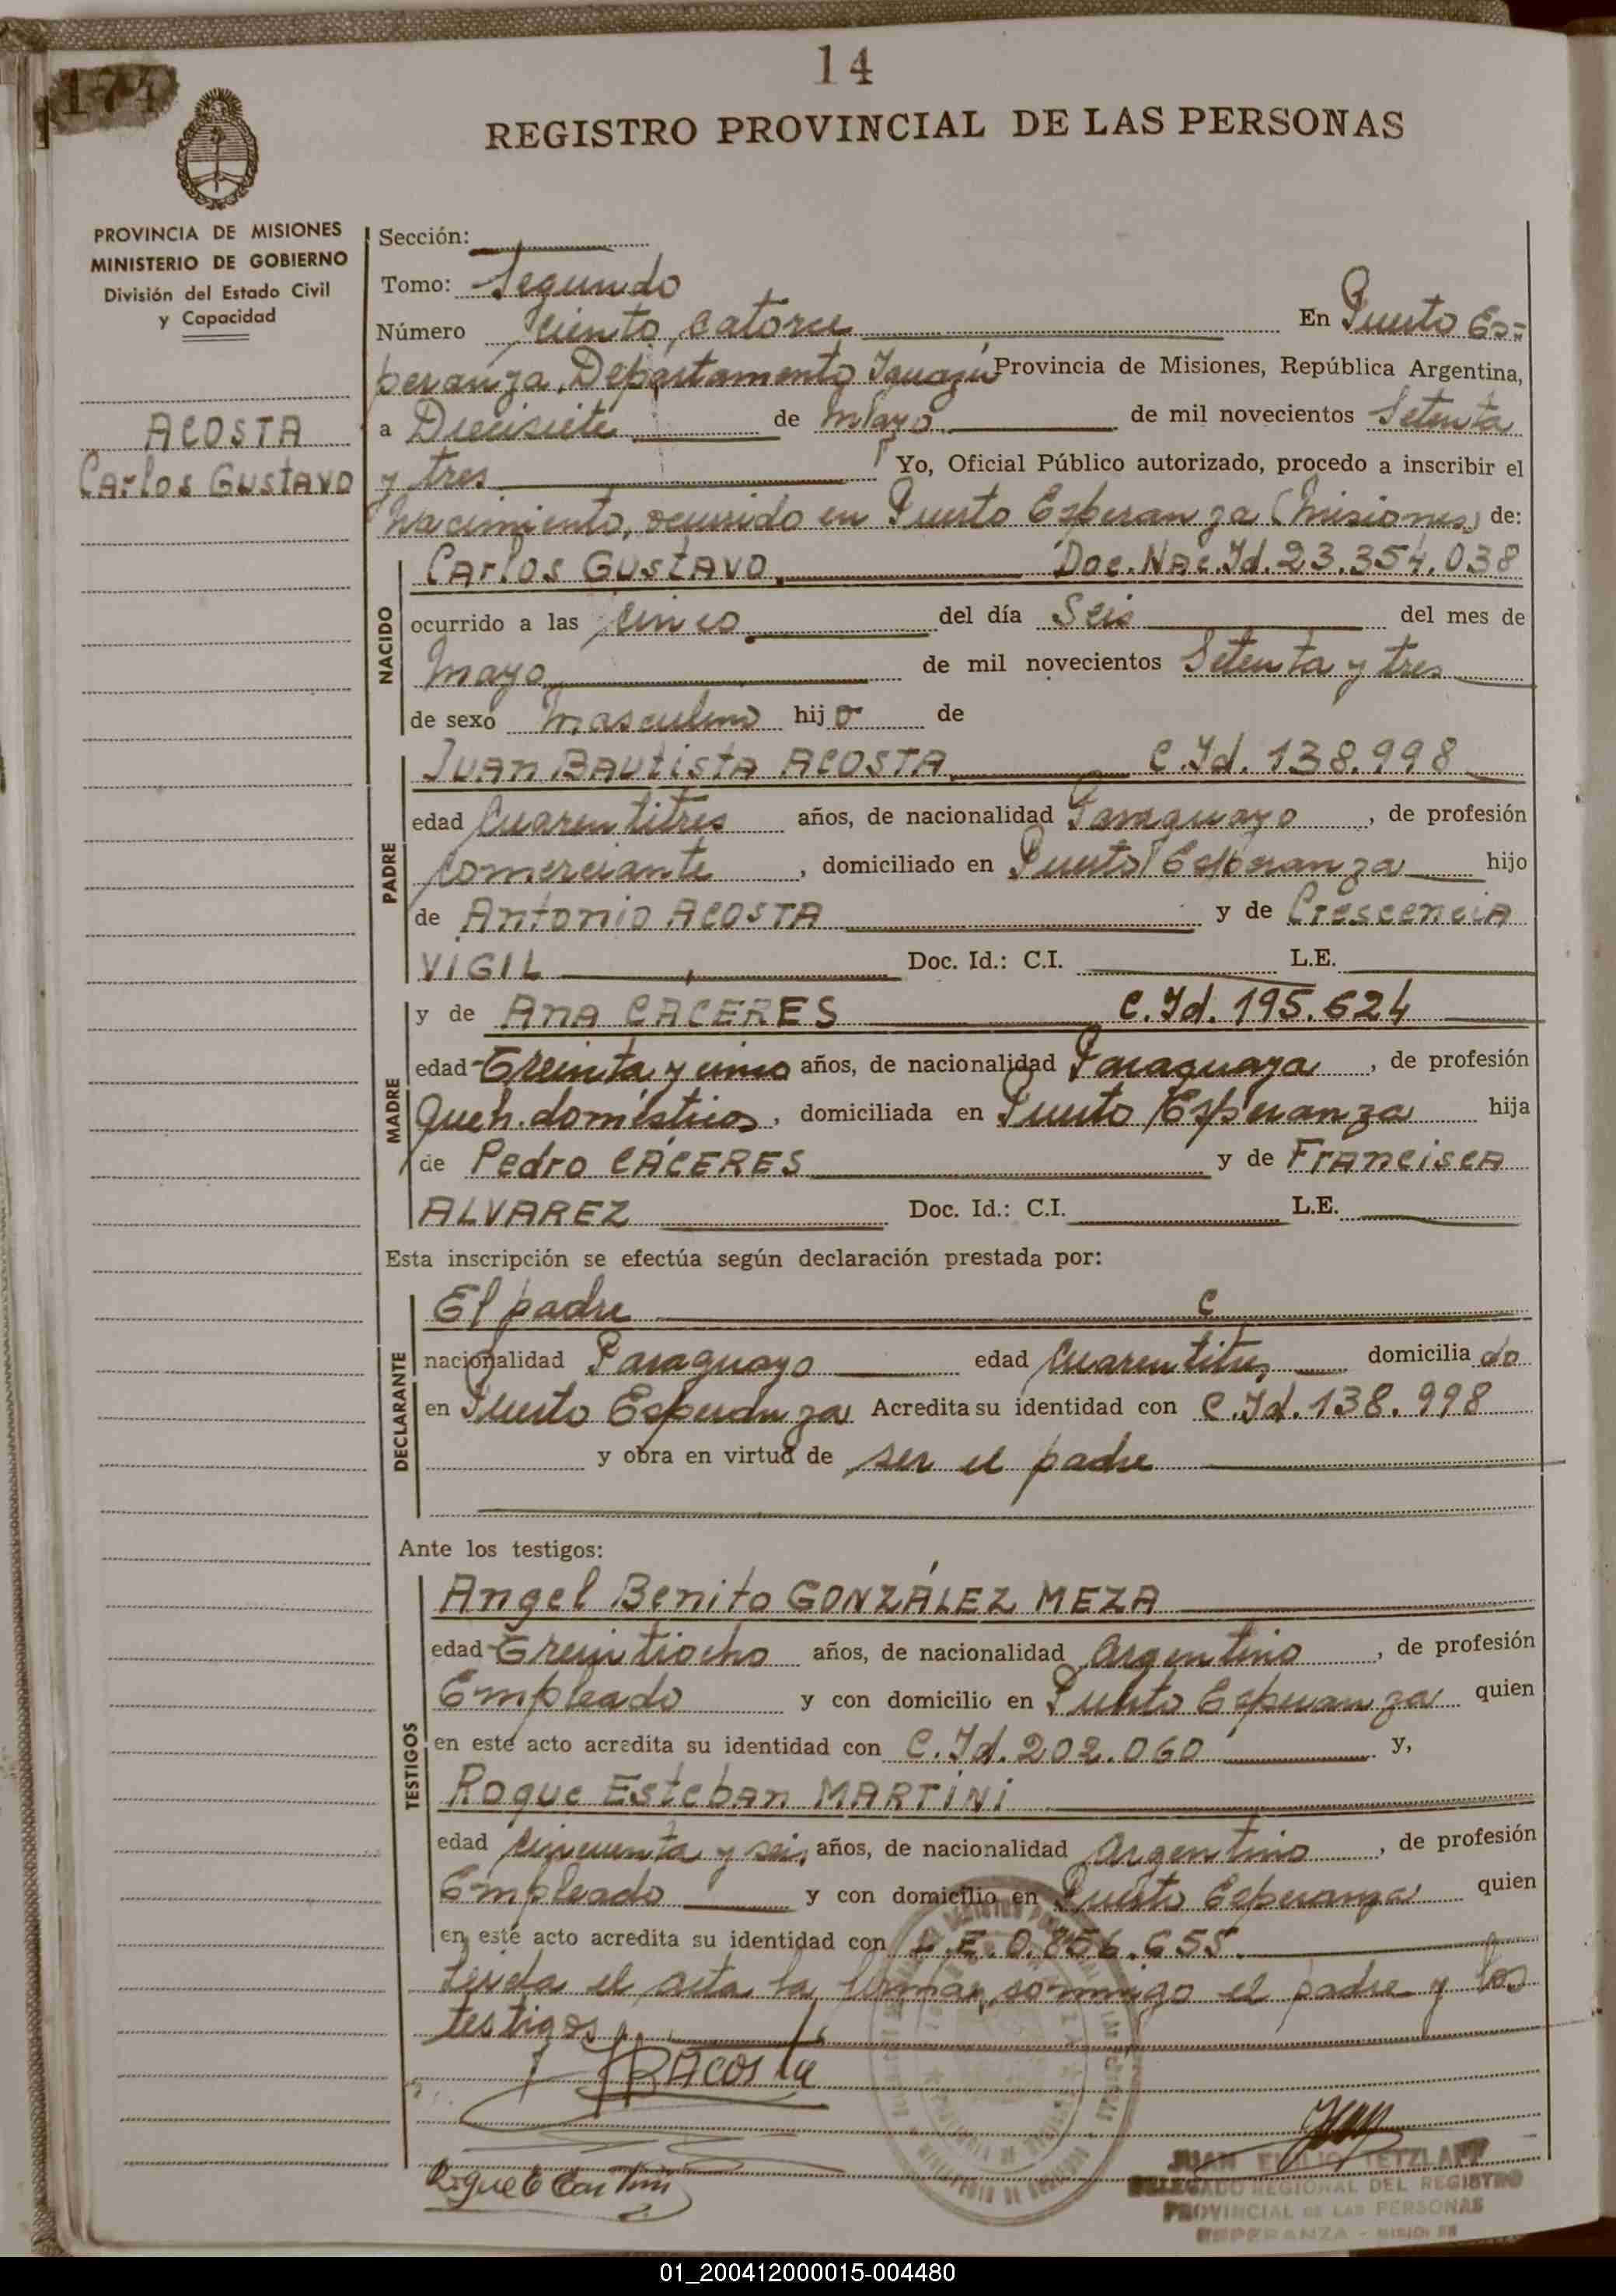 174
14
REGISTRO PROVINCIAL DE LAS PERSONAS
PROVINCIA DE MISIONES
MINISTERIO DE GOBIERNO
División del Estado Civil
y Capacidad
ACOSTA
Carlos Gustavo
Sección:
Tomo: Segundo
Número ciento catorce En Puerto Es=
peranza, Departamento Iguazú Provincia de Misiones, República Argentina,
a Diecisiete de Mayo de mil novecientos Setenta
y tres Yo, Oficial Público autorizado, procedo a inscribir el
Nacimiento, ocurrido en Puerto Esperanza (Misiones) de:
NACIDO
Carlos Gustavo Doc. Nac. Id. 23.354.038
ocurrido a las cinco del día Seis del mes de
Mayo de mil novecientos Setenta y tres
de sexo Masculino hijo de
PADRE
Juan Bautista ACOSTA C.Id. 138.998
edad Cuarentitres años, de nacionalidad Paraguayo, de profesión
Comerciante, domiciliado en Puerto Esperanza hijo
de Antonio ACOSTA y de Crescencia
VIGIL Doc. Id.: C.I. L.E.
MADRE
y de Ana CACERES C.Id. 195.624
edad Treinta y uno años, de nacionalidad Paraguaya, de profesión
Queh. domésticos, domiciliada en Puerto Esperanza hija
de Pedro CÁCERES y de Francisca
ALVAREZ Doc. Id.: C.I. L.E.
Esta inscripción se efectúa según declaración prestada por:
DECLARANTE
El padre
nacionalidad Paraguayo edad Cuarentitres domiciliado
en Puerto Esperanza Acredita su identidad con C.Id. 138.998
y obra en virtud de ser el padre
Ante los testigos:
TESTIGOS
Angel Benito GONZÁLEZ MEZA
edad Treintiocho años, de nacionalidad Argentino, de profesión
Empleado y con domicilio en Puerto Esperanza quien
en este acto acredita su identidad con C.Id. 202.060 y,
Roque Esteban MARTINI
edad Cincuenta y seis años, de nacionalidad Argentino, de profesión
Empleado y con domicilio en Puerto Esperanza quien
en este acto acredita su identidad con L.E. 0.856.655.
Leida el acta la firman conmigo el padre y los
testigos
JBACosta
JUAN EMILIO TETZLAFF
DELEGADO REGIONAL DEL REGISTRO
PROVINCIAL DE LAS PERSONAS
ESPERANZA - MISIONES
01_200412000015-004480